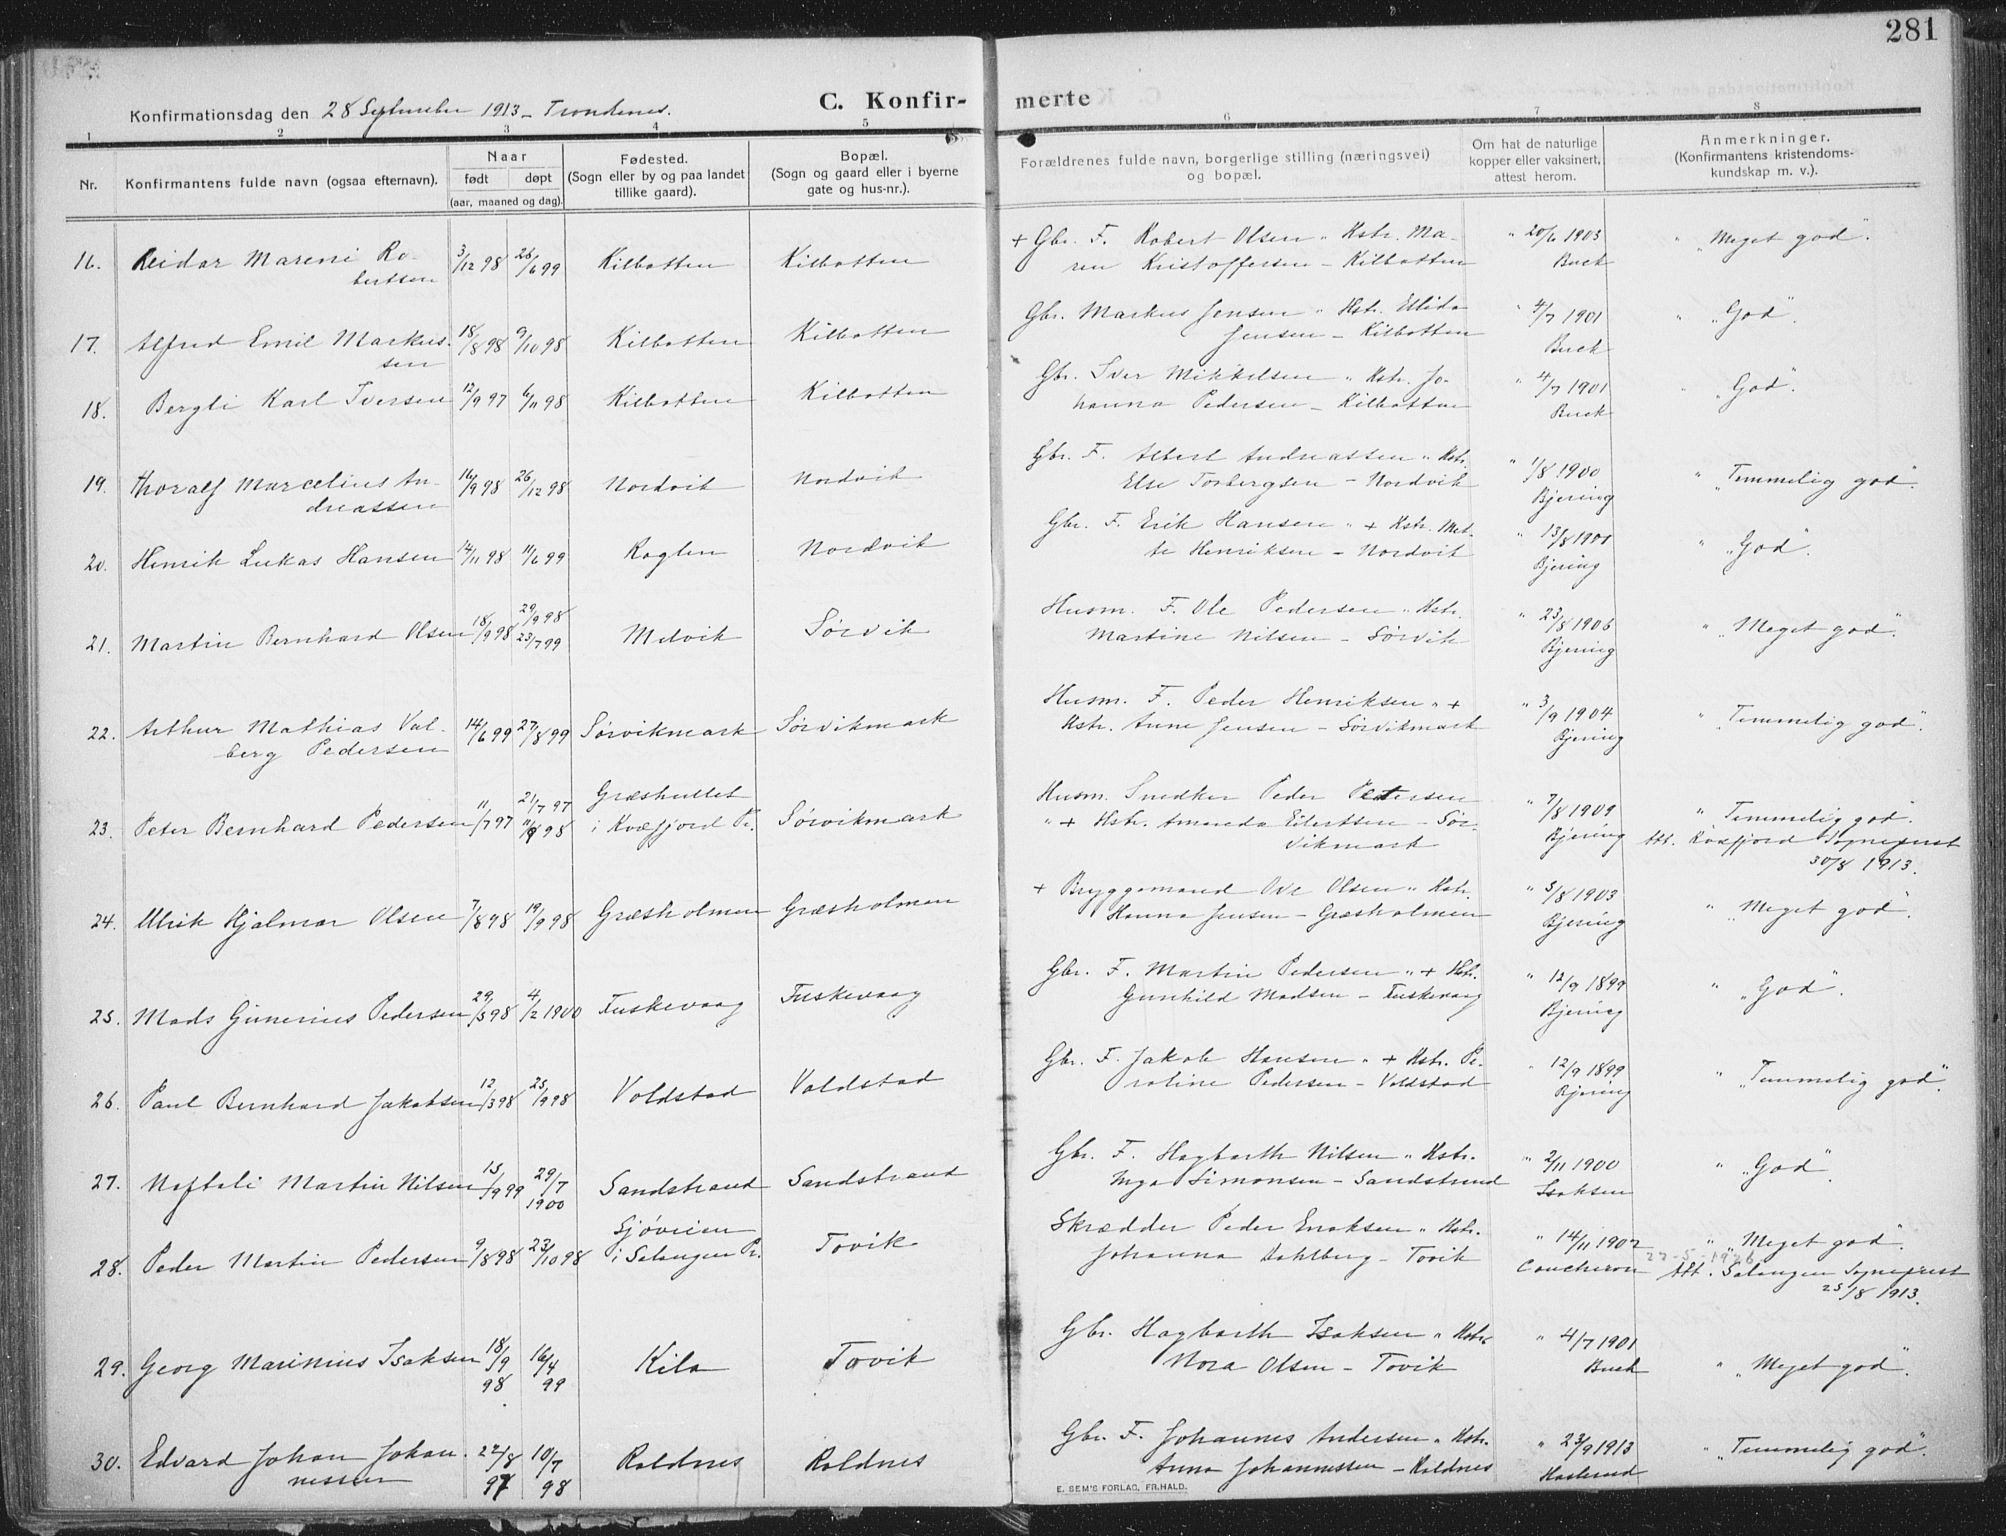 281
Konfirmationsdag den 28 September 1913 - Trondenes.
C. Konfir-
merte
1 2 3 4 5 6 7 8
Nr.
Konfirmantens fulde navn (ogsaa efternavn).
Naar
født døpt
(aar, maaned og dag).
Fødested.
(Sogn eller by og paa landet
tillike gaard).
Bopæl.
(Sogn og gaard eller i byerne
gate og hus-nr.).
Forældrenes fulde navn, borgerlige stilling (næringsvei)
og bopæl.
Om hat de naturlige
kopper eller vaksinert,
attest herom.
Anmerkninger.
(Konfirmantens kristendoms-
kundskap m. v.).
16. Reidar Mareni Ro- 3/12 98 26/6 99 Kilbotten Kilbotten + Gbr. F. Robert Olsen " Hstr. Ma- " 20/6 1903 " "Meget god".
bertsen ren Kristoffersen - Kilbotten Buck
17. Alfred Emil Markus- 18/8 98 9/10 98 Kilbotten Kilbotten Gbr. Markus Jensen " Hstr. Ellida " 4/7 1901 " "God".
sen Jensen - Kilbotten Buck
18. Bergli Karl Iversen 12/9 97 6/11 98 Kilbotten Kilbotten Gbr. Iver Mikkelsen " Hstr. Jo- " 4/7 1901 " "God".
hanna Pedersen - Kilbotten Buck
19. Thoralf Marcelius An- 16/9 98 26/12 98 Nordvik Nordvik Gbr. F. Albert Andreassen " Hstr. " 1/8 1900 " "Temmelig god".
dreassen Else Torbergsen - Nordvik Bjering
20. Henrik Lukas Hansen 14/11 98 11/6 99 Roglen Nordvik Gbr. F. Erik Hansen " + Hstr. Met- " 13/8 1901 " "God".
te Henriksen - Nordvik Bjering
21. Martin Bernhard Olsen 18/9 98 29/9 98 Melvik Sørvik Husm. F. Ole Pedersen " Hstr. " 23/8 1906 " "Meget god".
23/7 99 Martine Nilsen - Sørvik Bjering
22. Arthur Mathias Val- 14/6 99 27/8 99 Sørvikmark Sørvikmark Husm. F. Peder Henriksen " + " 3/9 1904 " "Temmelig god".
berg Pedersen Hstr. Anne Jensen - Sørvikmark Bjering
23. Peter Bernhard Pedersen 11/7 97 21/7 97 Græshullet Sørvikmark Husm. Snedker Peder Petersen " 7/8 1909 " "Temmelig god".
11/9 98 i Kvæfjord Pr. " + Hstr. Amanda Eilertsen - Sør- Bjering Att. Kvæfjord Sogneprest
vikmark 30/8 1913.
24. Ulrik Hjalmar Olsen 7/8 98 19/9 98 Græsholmen Græsholmen + Bryggemand Ove Olsen " Hstr. " 5/8 1903 " "Meget god".
Hanna Jensen - Græsholmen Bjering
25. Mads Gunerius Pedersen 29/5 98 4/2 1900 Fuskevaag Fuskevaag Gbr. F. Martin Pedersen " + Hstr. " 12/9 1899 " "God".
Gunhild Madsen - Fuskevaag Bjering
26. Paul Bernhard Jakobsen 12/3 98 25/9 98 Voldstad Voldstad Gbr. F. Jakob Hansen " + Hstr. Pe- " 12/9 1899 " "Temmelig god".
roline Pedersen - Voldstad Bjering
27. Naftali Martin Nilsen 15/9 99 29/7 1900 Sandstrand Sandstrand Gbr. F. Hagbarth Nilsen " Hstr. " 2/11 1900 " "God".
Inga Simonsen - Sandstrand Isaksen
28. Peder Martin Pedersen 9/8 98 23/10 98 Sjøveien Tovik Skrædder Peder Enoksen " Hstr. " 14/11 1902 " "Meget god".
i Salangen Pr. Johanna Dahlberg - Tovik Coucheron 27-5-1926 Att. Salangen Sogneprest
25/8 1913.
29. Georg Marinius Isaksen 18/9 98 16/4 99 Kila Tovik Gbr. Hagbarth Isaksen " Hstr. " 4/7 1901 " "Meget god".
Nora Olsen - Tovik Buck
30. Edvard Johan Johan- 27/8 97 10/7 98 Roldnes Roldnes Gbr. F. Johannes Andersen " Hstr. " 23/9 1913 " "Temmelig god".
nessen Anna Johannessen - Roldnes
E. SEM'S FORLAG, FR.HALD.